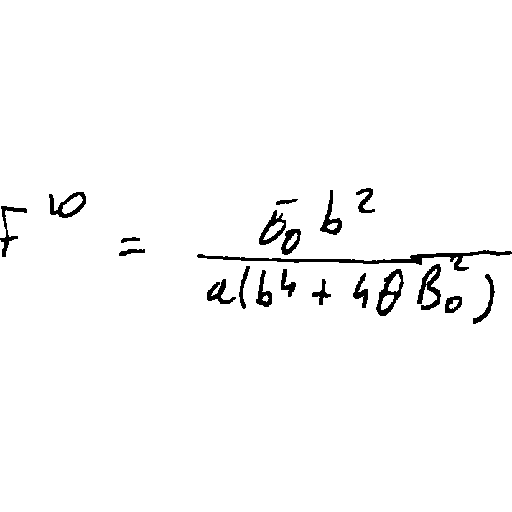 F^{10} = \frac{\bar{6}_0 b^2}{a(b^4 + 4\theta B_0^2)}